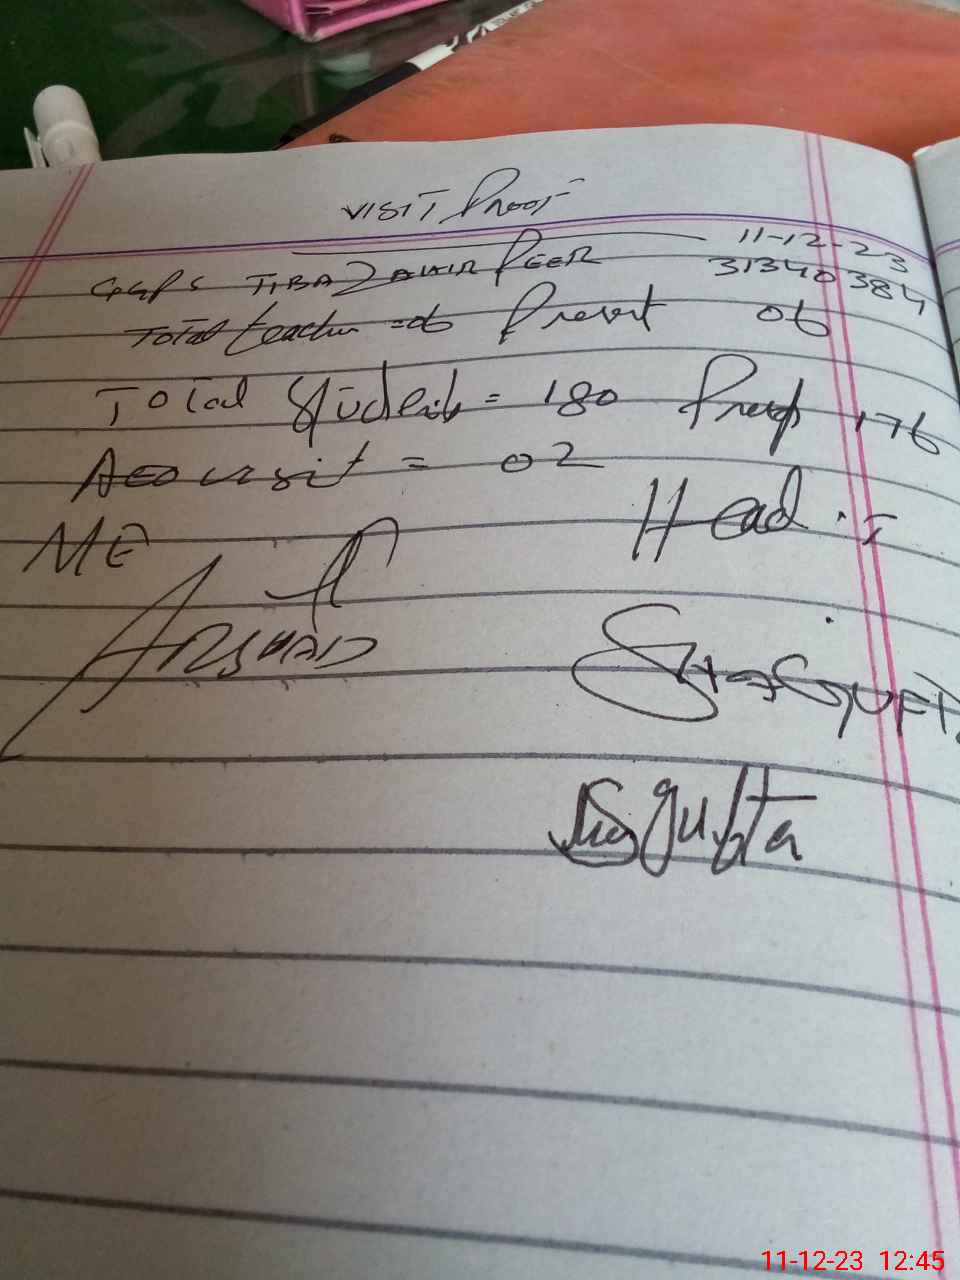 VISIT Proof
11-12-23
GGPS TIBA ZAHIR PEER 31340384
Total teacher = 06 Present 06
Total Students = 180 Present 176
AEO visit = 02
ME Head :-
ARSHAD
Gupta
11-12-23 12:45